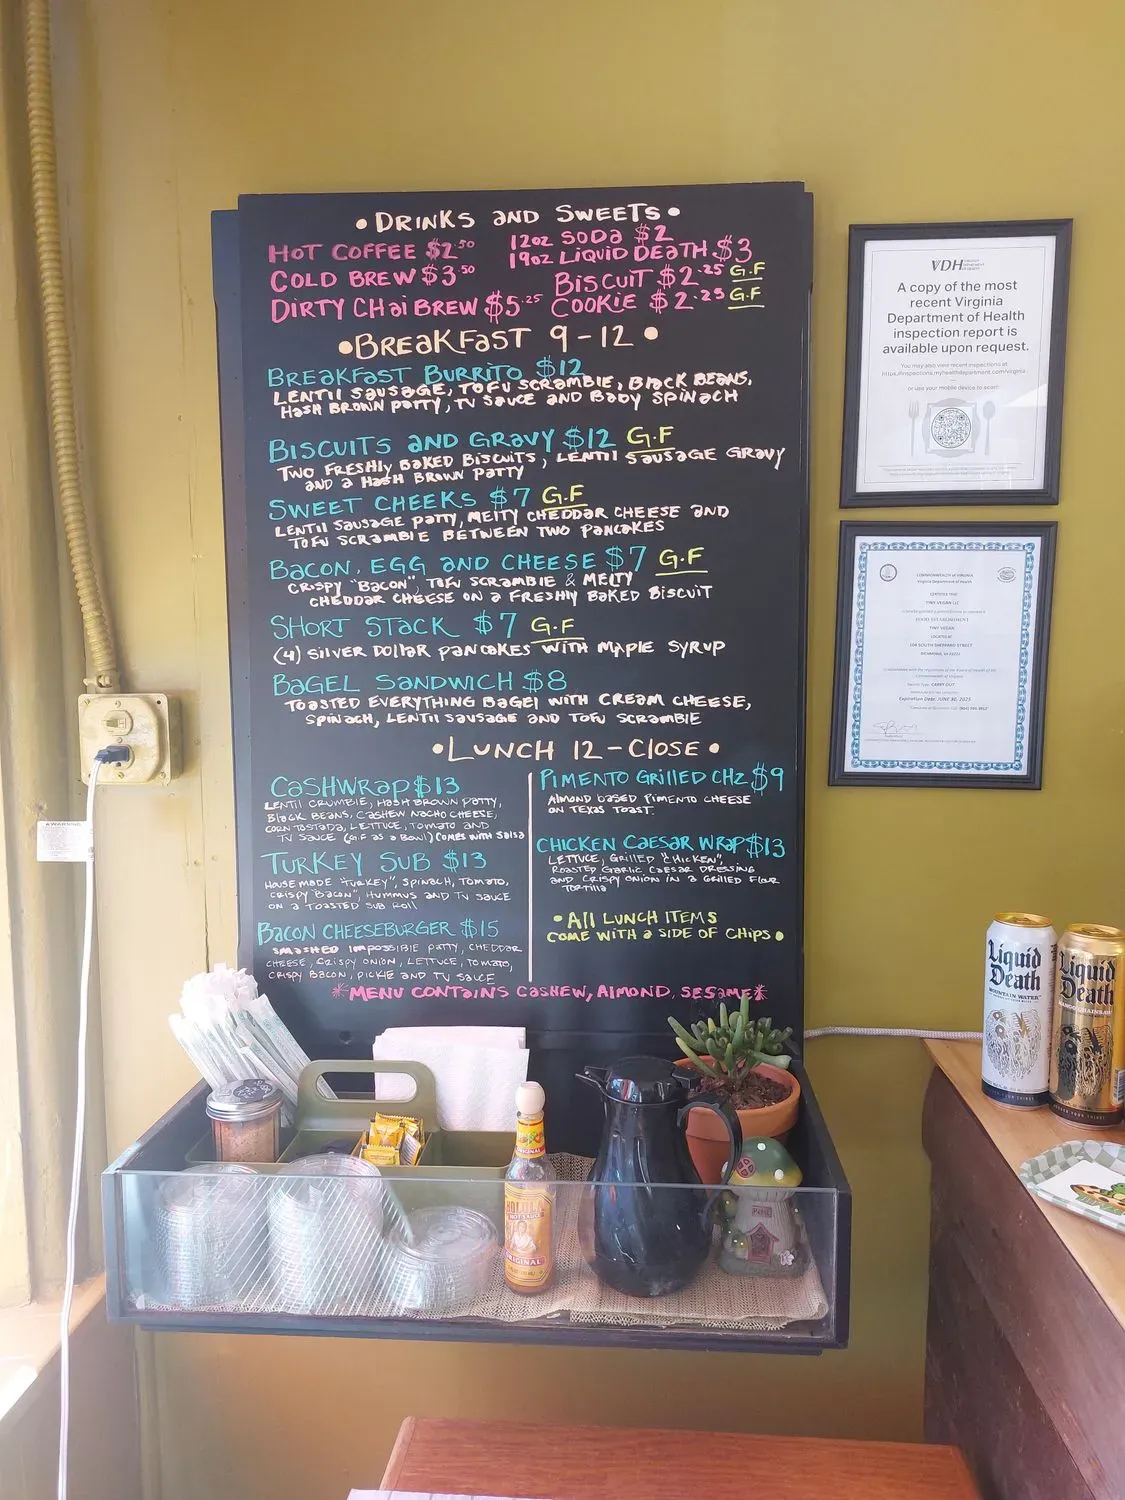 •DRINKS AND SWEETS•
HOT COFFEE $2.50
COLD BREW $3.50
DIRTY CHAI BREW $5.25
12oz SODA $2
19oz LIQUID DEATH $3
BISCUIT $2.25 G.F
COOKIE $2.25 G.F
•BREAKFAST 9-12•
BREAKFAST BURRITO $12
LENTIL SAUSAGE, TOFU SCRAMBLE, BLACK BEANS,
HASH BROWN PATTY, TV SAUCE AND BABY SPINACH
BISCUITS AND GRAVY $12 G.F
TWO FRESHLY BAKED BISCUITS, LENTIL SAUSAGE GRAVY
AND A HASH BROWN PATTY
SWEET CHEEKS $7 G.F
LENTIL SAUSAGE PATTY, MELTY CHEDDAR CHEESE AND
TOFU SCRAMBLE BETWEEN TWO PANCAKES
BACON, EGG AND CHEESE $7 G.F
CRISPY "BACON", TOFU SCRAMBLE & MELTY
CHEDDAR CHEESE ON A FRESHLY BAKED BISCUIT
SHORT STACK $7 G.F
(4) SILVER DOLLAR PANCAKES WITH MAPLE SYRUP
BAGEL SANDWICH $8
TOASTED EVERYTHING BAGEL WITH CREAM CHEESE,
SPINACH, LENTIL SAUSAGE AND TOFU SCRAMBLE
•LUNCH 12-CLOSE•
CASHWRAP $13
LENTIL CRUMBLE, HASH BROWN PATTY,
BLACK BEANS, CASHEW NACHO CHEESE,
CORN TOSTADA, LETTUCE, TOMATO AND
TV SAUCE (G.F AS A BOWL) COMES WITH SALSA
TURKEY SUB $13
HOUSEMADE "TURKEY", SPINACH, TOMATO,
CRISPY "BACON", HUMMUS AND TV SAUCE
ON A TOASTED SUB ROLL
BACON CHEESEBURGER $15
SMASHED IMPOSSIBLE PATTY, CHEDDAR
CHEESE, CRISPY ONION, LETTUCE, TOMATO,
CRISPY BACON, PICKLE AND TV SAUCE
PIMENTO GRILLED CHZ $9
ALMOND BASED PIMENTO CHEESE
ON TEXAS TOAST.
CHICKEN CAESAR WRAP $13
LETTUCE, GRILLED "CHICKEN",
ROASTED GARLIC CAESAR DRESSING
AND CRISPY ONION IN A GRILLED FLOUR
TORTILLA
•ALL LUNCH ITEMS
COME WITH A SIDE OF CHIPS•
*MENU CONTAINS CASHEW, ALMOND, SESAME*
VDH
A copy of the most
recent Virginia
Department of Health
inspection report is
available upon request.
You may also view recent inspections at
https://inspections.myhealthdepartment.com/virginia
or use your mobile device to scan:
COMMONWEALTH of VIRGINIA
Virginia Department of Health
CERTIFIES THAT
TINY VEGAN LLC
FOOD ESTABLISHMENT
TINY VEGAN
LOCATED AT
104 SOUTH SHEPPARD STREET
RICHMOND, VA 23221
CARRY OUT
Expiration Date: JUNE 30, 2025
WARNING
Liquid
Death
MOUNTAIN WATER
Liquid
Death
MANGO CHAINSAW
CHOLULA
HOT SAUCE
ORIGINAL
ORIGINAL